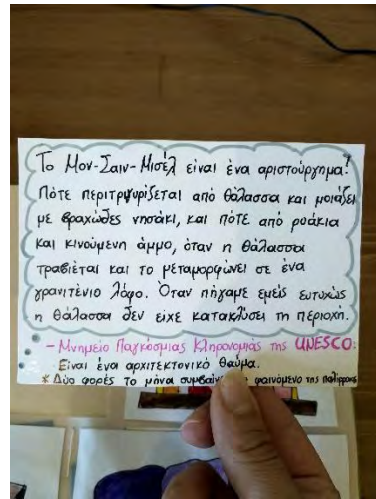 Το Μον-Σαιν-Μισέλ είναι ένα αριστούργημα!
Πότε περιτρυρίζεται από θάλασσα και μοιάζει
με βραχώδες νησάκι, και πότε από ρυάκια
και κινούμενη άμμο, όταν η θάλασσα
τραβιέται και το μεταμορφώνει σε ένα
γρανιτένιο λόφο. Όταν πήγαμε εμείς ευτυχώς
η θάλασσα δεν είχε κατακλύσει τη περιοχή.
- Μνημείο Παγκόσμιας Κληρονομιάς της UNESCO:
Είναι ένα αρχιτεκτονικό θαύμα.
* Δύο φορές το μήνα συμβαίνει φαινόμενο της παλίρροιας